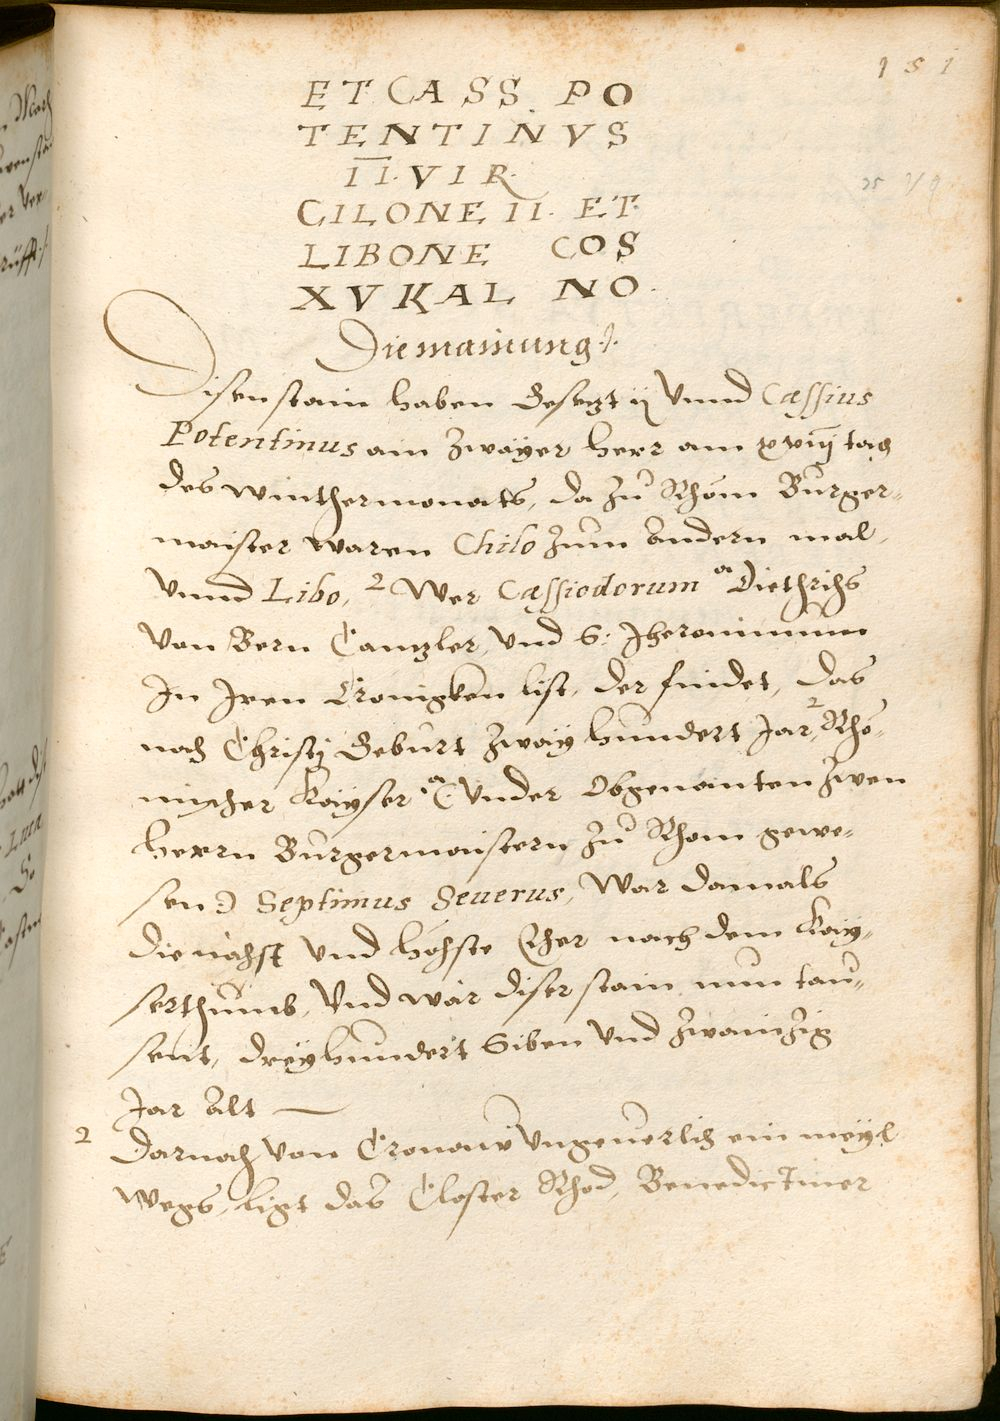 151
ET CASS PO
TENTINVS
II. VIR.
CILONE II. ET
LIBONE COS
XV KAL NO.
Die mainung.
Disen stain haben Gesetzt ij Vnnd Cassius
Potentinus ain Zwayer herr am xviij tag
des winthermonats, da zu Rhom Burger-
maister waren Chilo zum Andern mal,
Vnnd Libo, 2 Wer Cassiodorum a Diethrichs
Von Bern Cantzler, Vnd S: Jheronimum
In Iren Cronigken list, der findet, das
nach Christj Geburt Zway hundert Jar, 2 Rho-
mischer Kayser a (Vnder Obgenanten Zwen
herrn Burgermaistern zu Rhom gewe-
sen) Septimus Seuerus, War damals
die nächst Vnd höhste Eher nach dem Kay-
serthumb, Vnd wär diser stain nun tau-
sent, dreyhundert Siben Vnd Zwainzig
Jar Alt
2 Darnach Von Cronaw Vngeuerlich ein meyl
Wegs, ligt das Closter Rhod, Benedictiner